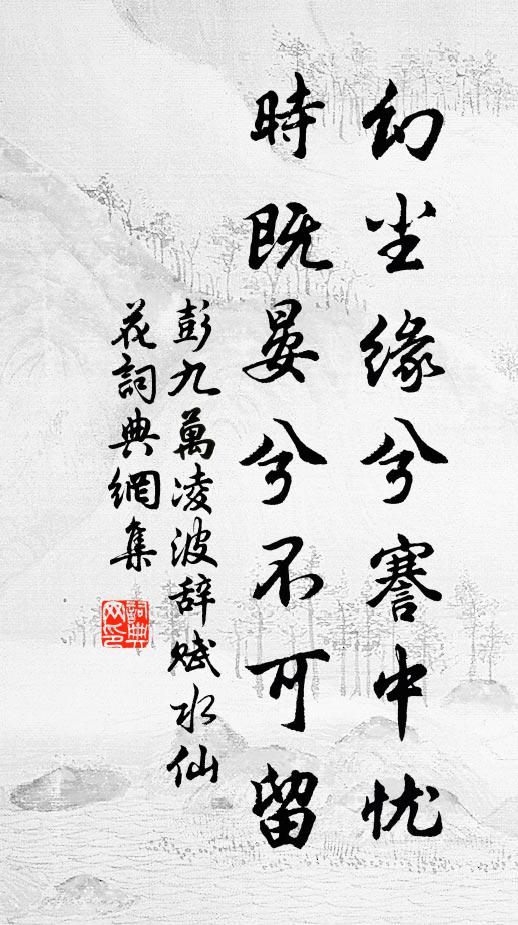 幻尘缘兮謇中忧
時既晏兮不可留
彭九萬凌波辞赋水仙
花詞典網集
詞典网印